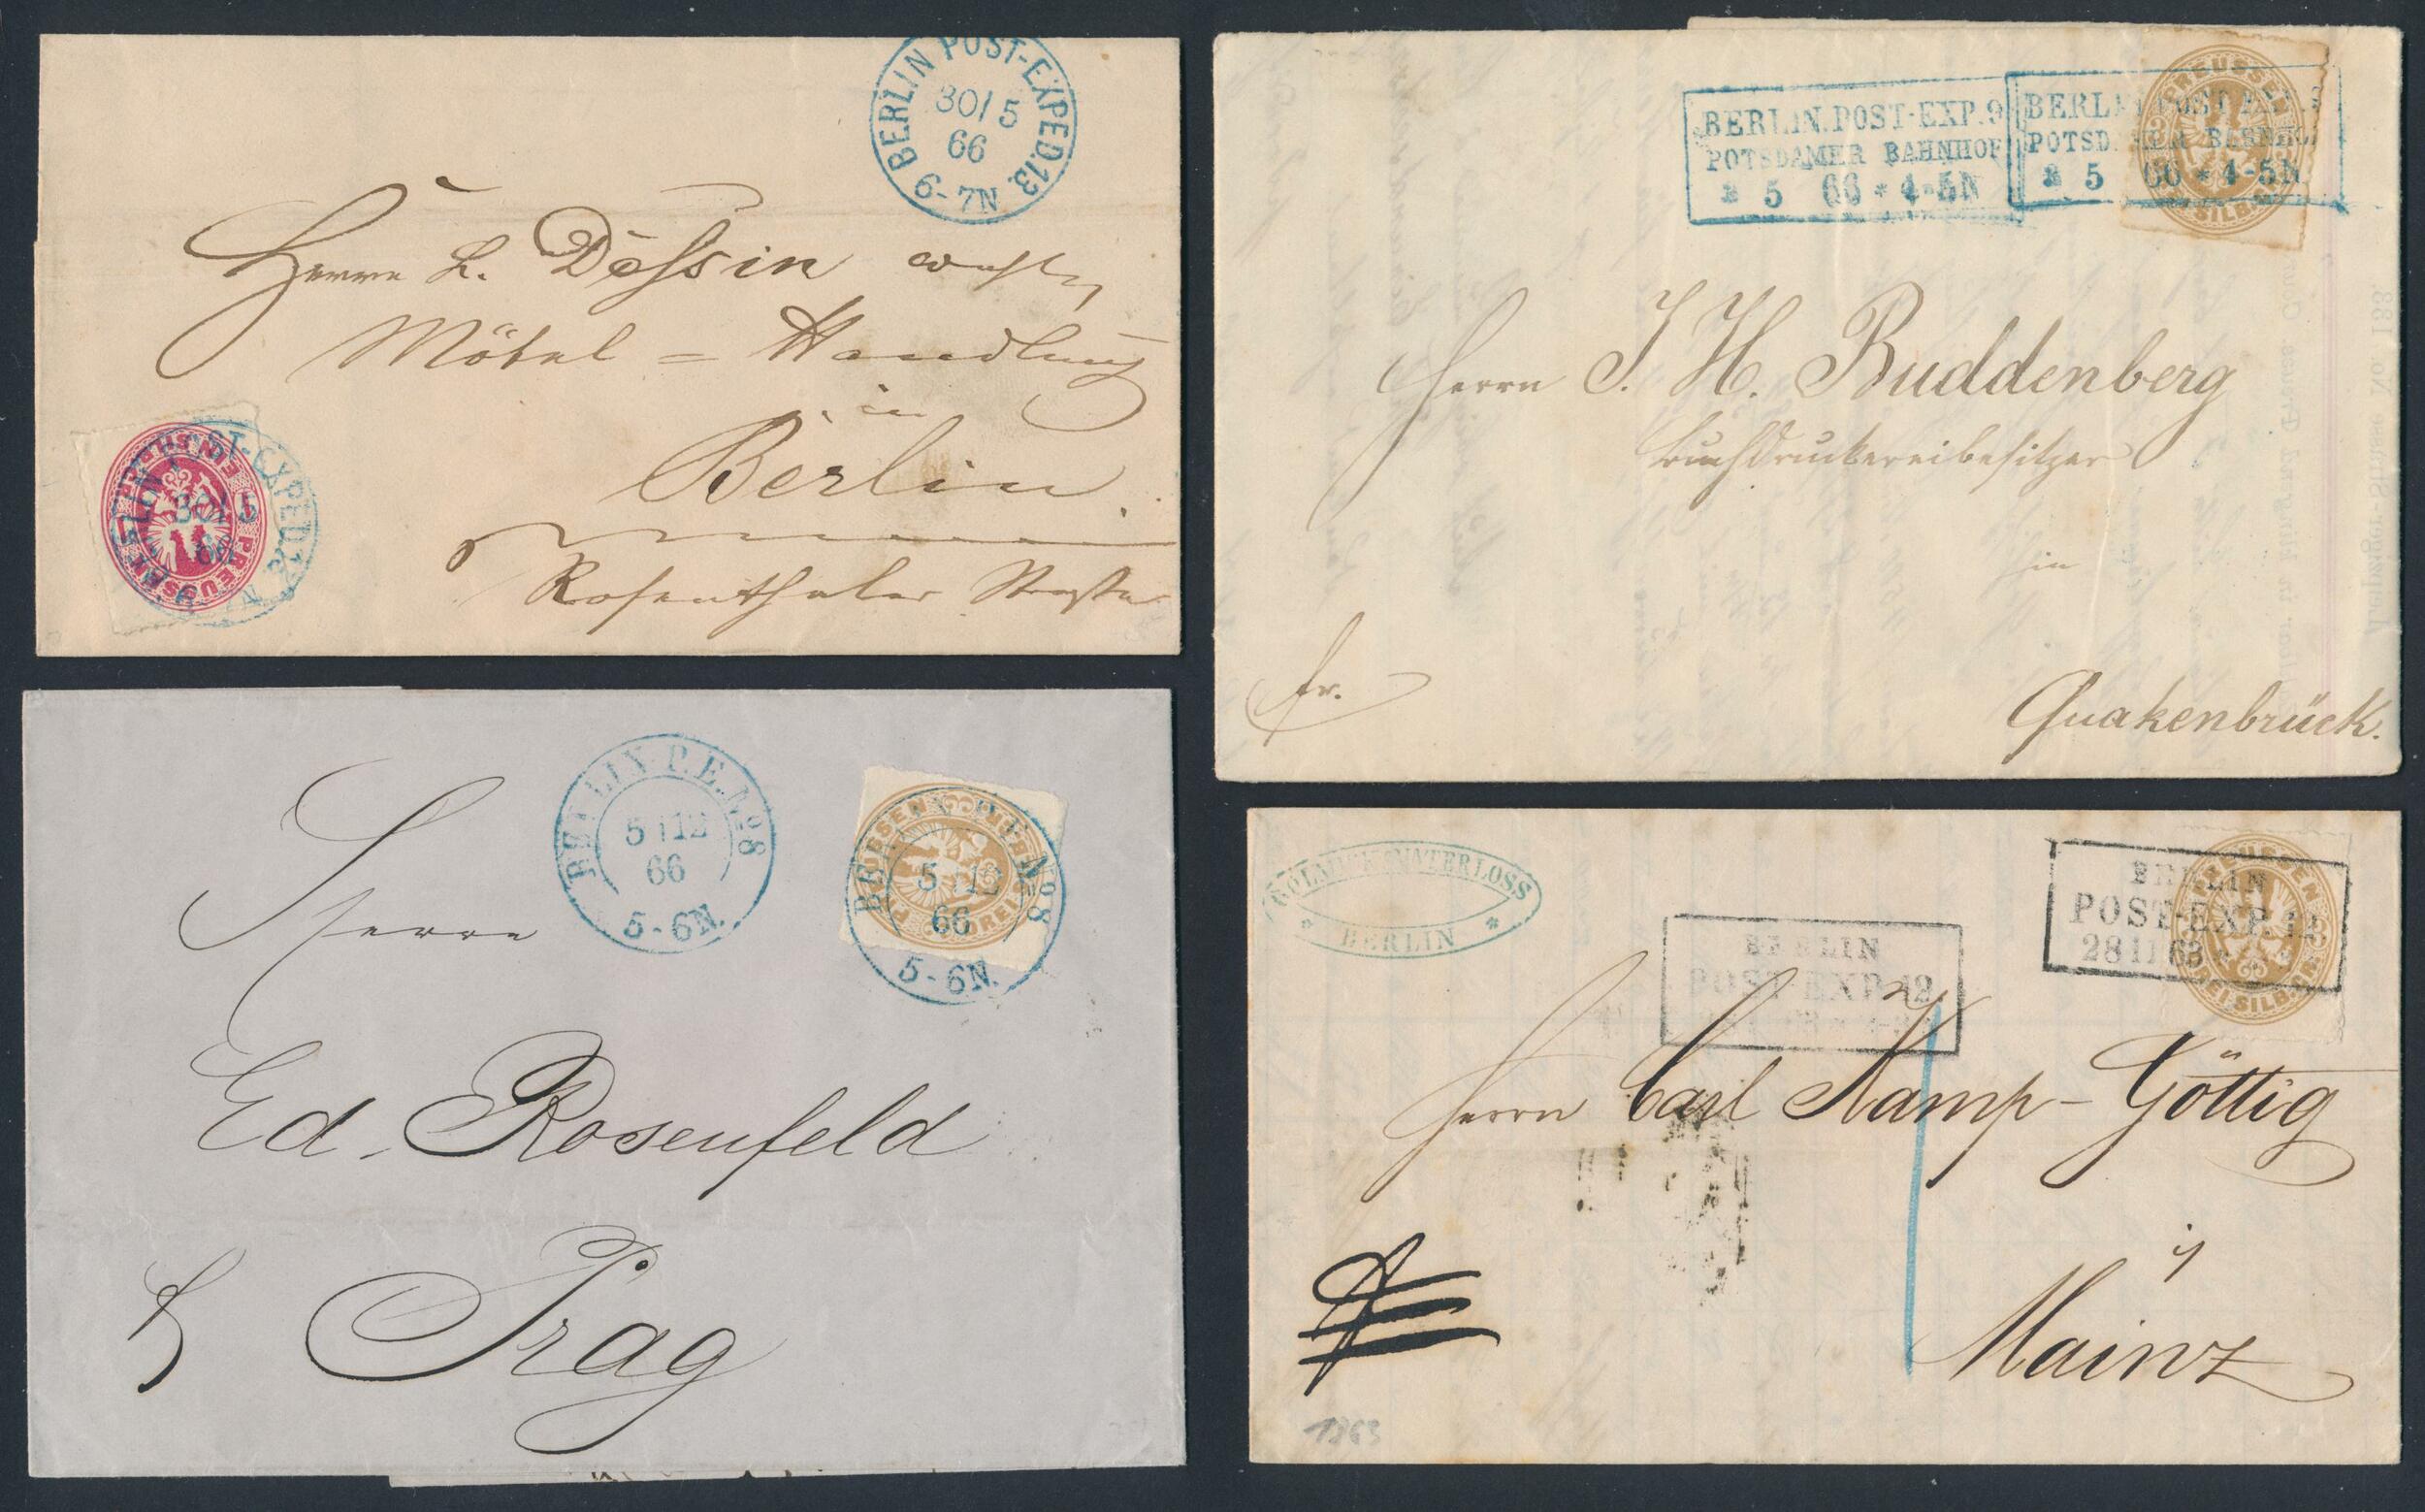 BERLIN POST-EXPED. 13.
30/5
66
6-7N
Herrn L. Dessin
Möbel = Handlung
in
Berlin.
Rosenthaler Strasse
POST-EXPED. 13
30/5
66
PREUSSEN
BERLIN.POST-EXP.9
POTSDAMER BAHNHOF
5 66 * 4-5N
BERLIN POST EXP. 9
POTSDAMER BAHNHOF
5 66 * 4-5N
PREUSSEN
SILB.
Herrn J. H. Buddenberg
Buchdruckereibesitzer
in
fr.
Quakenbrück.
BERLIN P.E. No 8
5 12
66
5-6N.
BERLIN P.E. No 8
5 12
66
5-6N.
PREUSSEN
DREI
Herrn
Ed. Rosenfeld
Prag
BERLIN
BERLIN
POST-EXP. 12
BERLIN
POST-EXP. 12
28 11 63
PREUSSEN
DREI SILB. GR.
Herrn Carl Kamp-Göttig
Mainz
1863